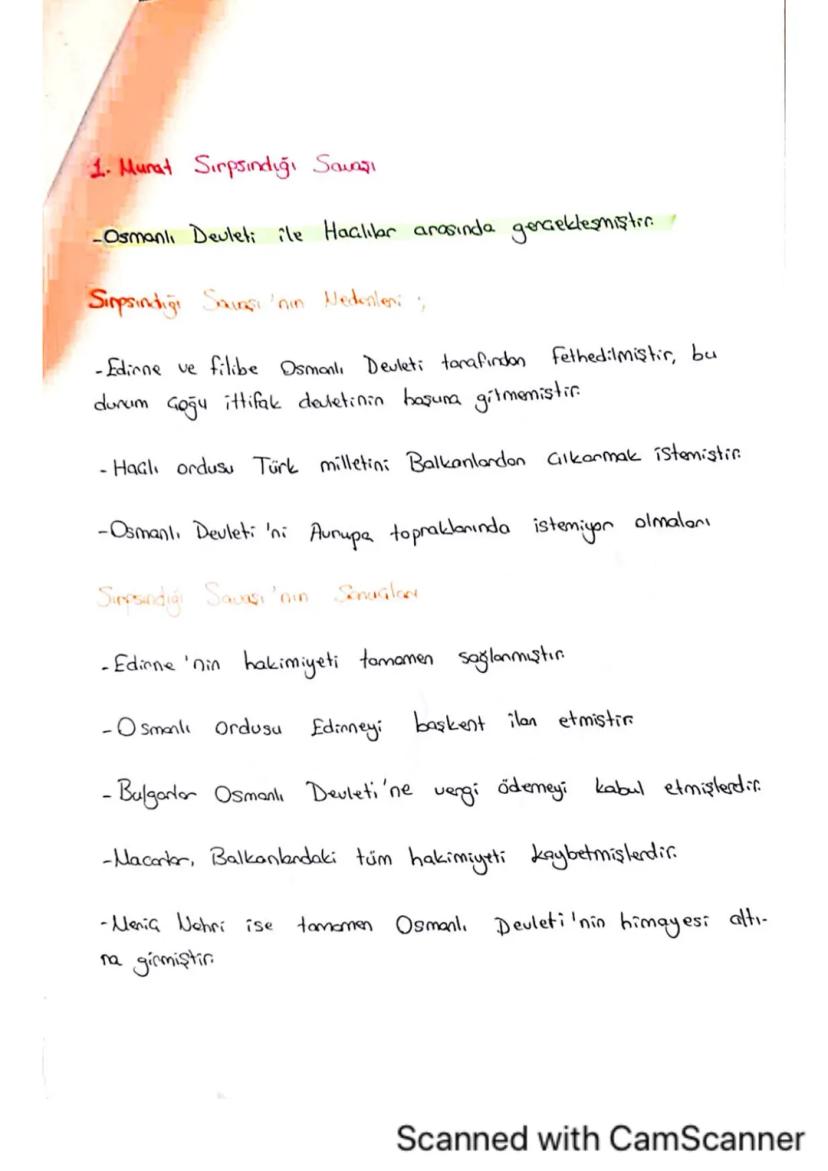 1. Murat Sırpsındığı Savaşı
-Osmanlı Devleti ile Haçlılar arasında gerçekleşmiştir.
Sırpsındığı Savaşı'nın Nedenleri ;
-Edirne ve filibe Osmanlı Devleti tarafından fethedilmiştir, bu
durum çoğu ittifak devletinin hoşuna gitmemiştir.
- Haçlı ordusu Türk milletini Balkanlardan çıkarmak istemiştir.
-Osmanlı Devleti 'ni Avrupa topraklarında istemiyor olmaları
Sırpsındığı Savaşı'nın Sonuçları
-Edirne 'nin hakimiyeti tamamen sağlanmıştır.
-Osmanlı Ordusu Edirneyi başkent ilan etmiştir.
-Bulgarlar Osmanlı Devleti'ne vergi ödemeyi kabul etmişlerdir.
-Macarlar, Balkanlardaki tüm hakimiyeti kaybetmişlerdir.
-Meriç Nehri ise tamamen Osmanlı Devleti'nin himayesi altı-
na girmiştir.
Scanned with CamScanner